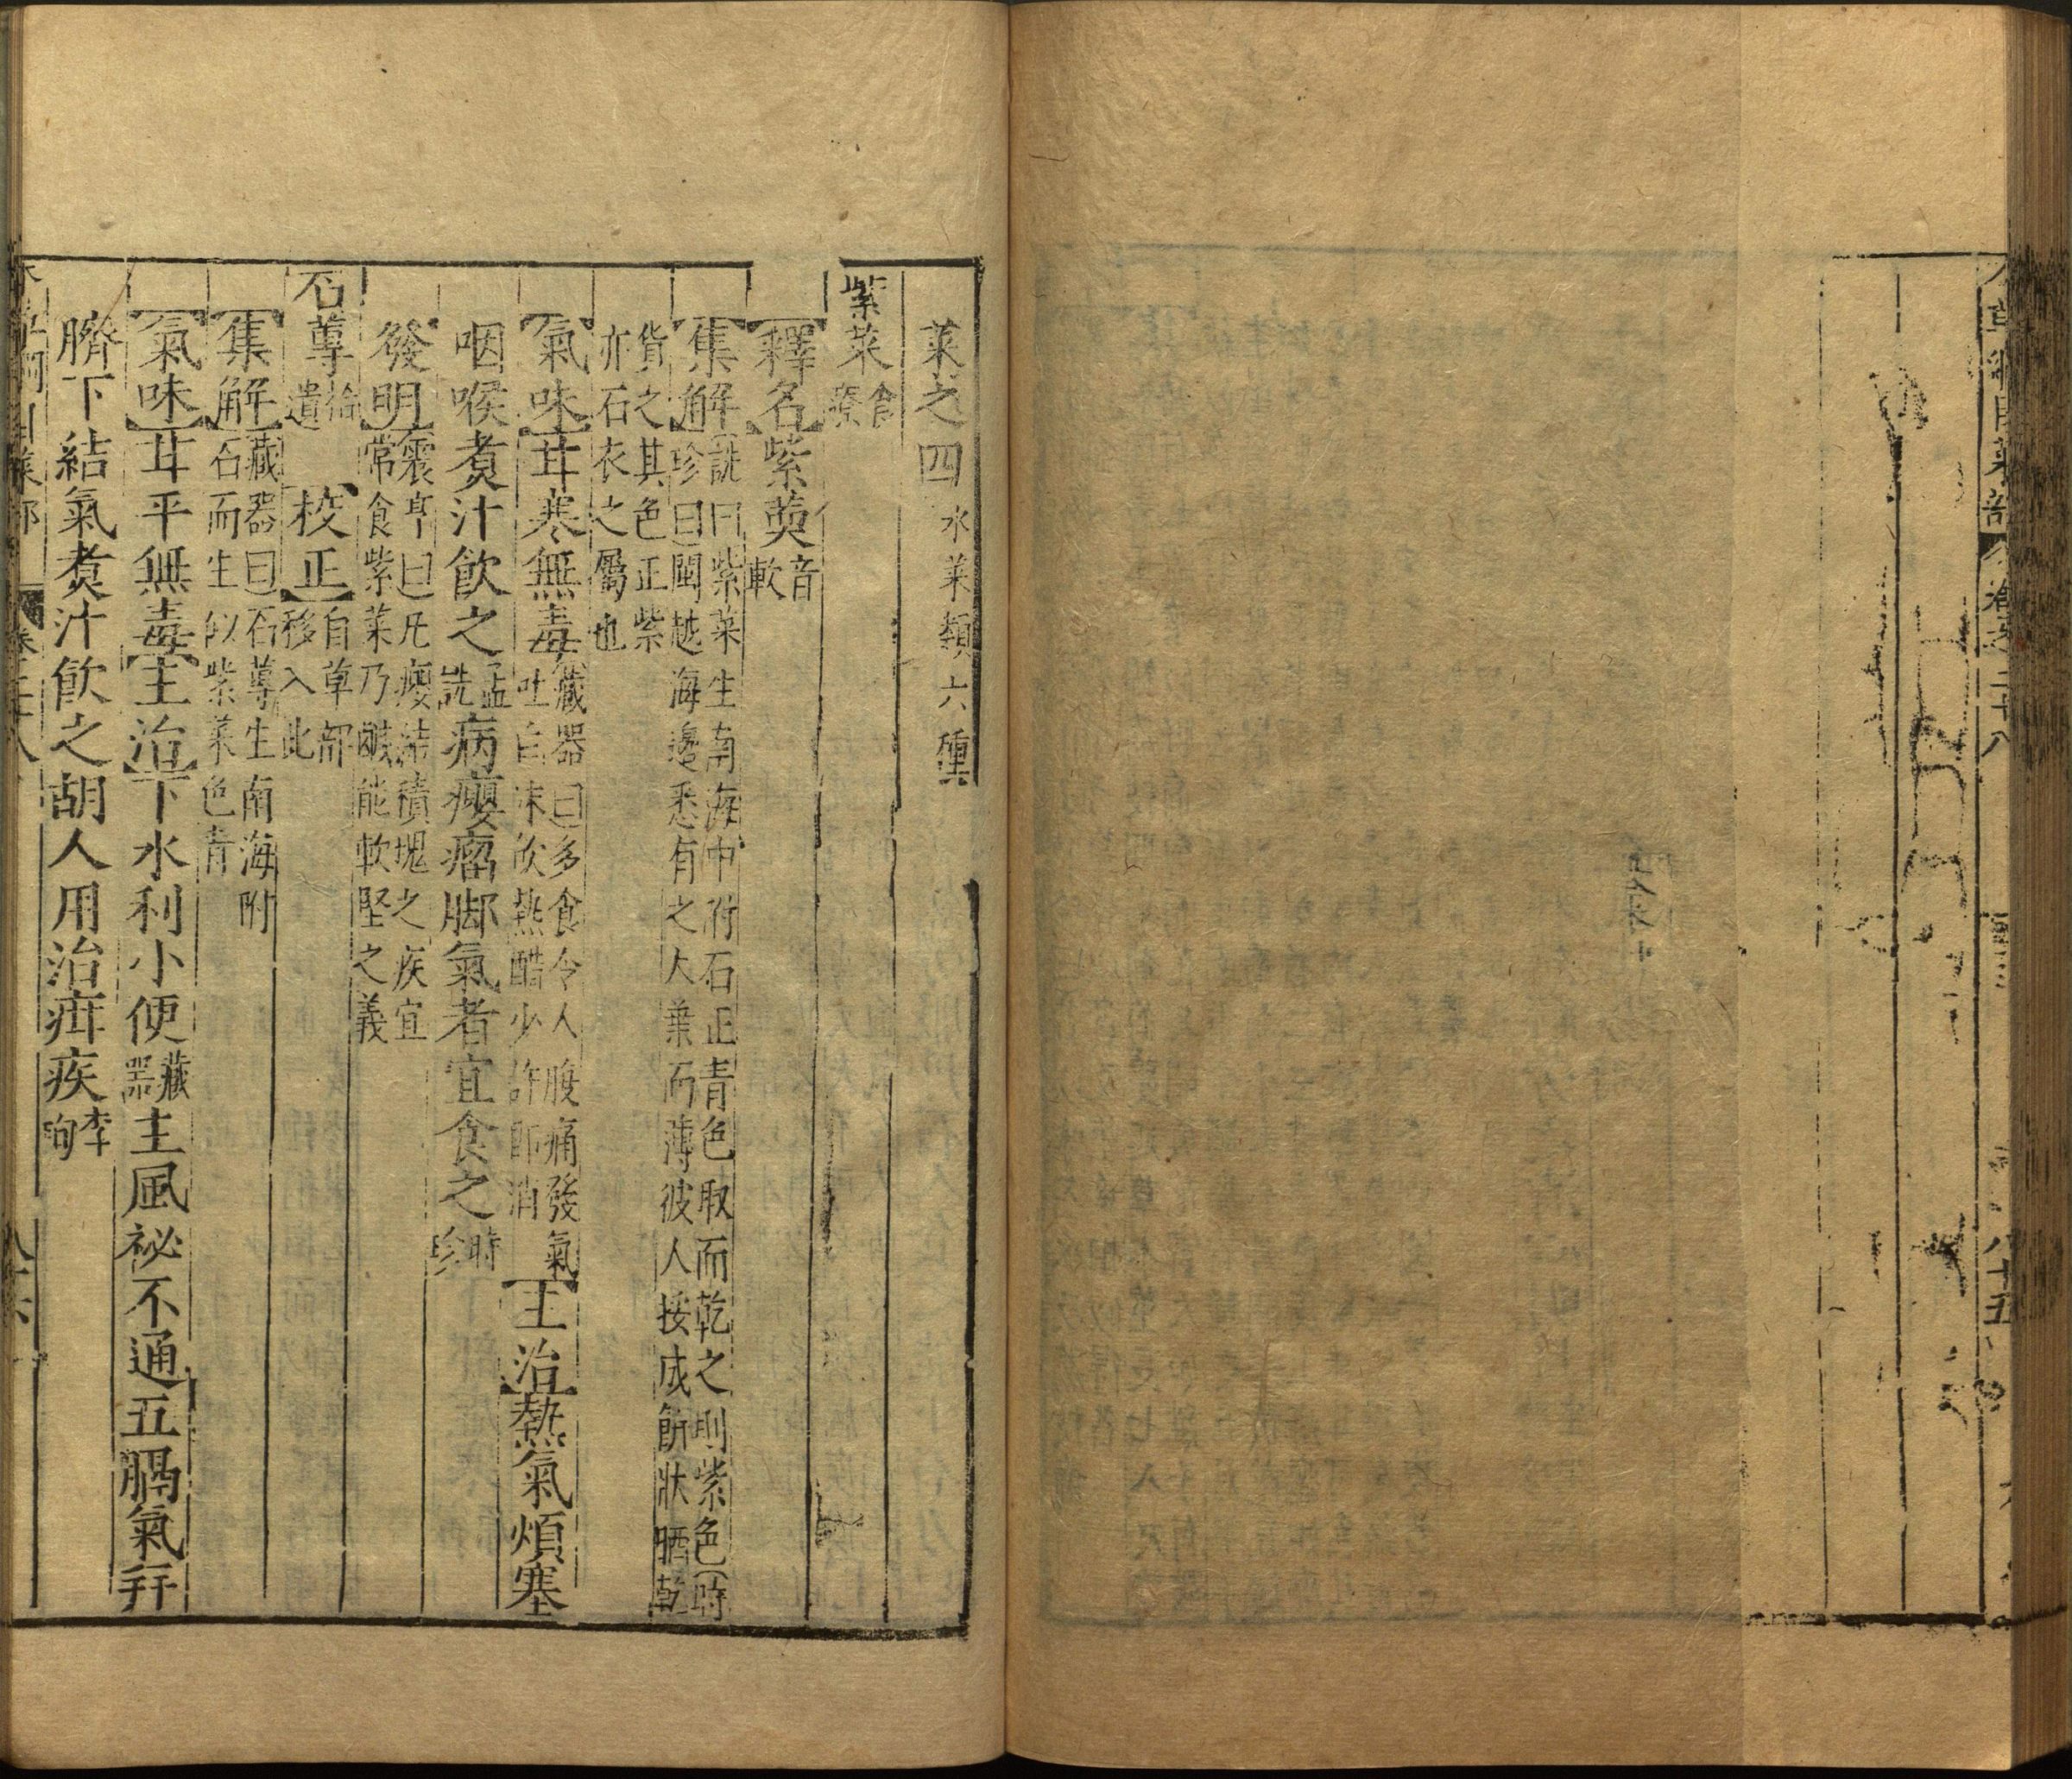 本草綱目菜部 卷之二十八 八十五
菜之四 水菜類六種
紫菜 食療
【釋名】紫䓴 音軟
【集解】詵曰紫菜生南海中附石正青色取而乾之則紫色時
珍曰閩越海邊悉有之大葉而薄彼人挼成餅狀晒乾
貨之其色正紫
亦石衣之屬也
【氣味】甘寒無毒 藏器曰多食令人腹痛發氣
吐白沫飲熱醋少許即消 【主治】熱氣煩塞
咽喉煮汁飲之 孟詵 病癭瘤脚氣者宜食之 時珍
【發明】震亨曰凡癭結積塊之疾宜
常食紫菜乃鹹能軟堅之義
石蓴 拾遺 【校正】自草部
移入此
【集解】藏器曰石蓴生南海附
石而生似紫菜色青
【氣味】甘平無毒【主治】下水利小便 藏器 主風祕不通五膈氣并
臍下結氣煮汁飲之胡人用治疳疾 李珣